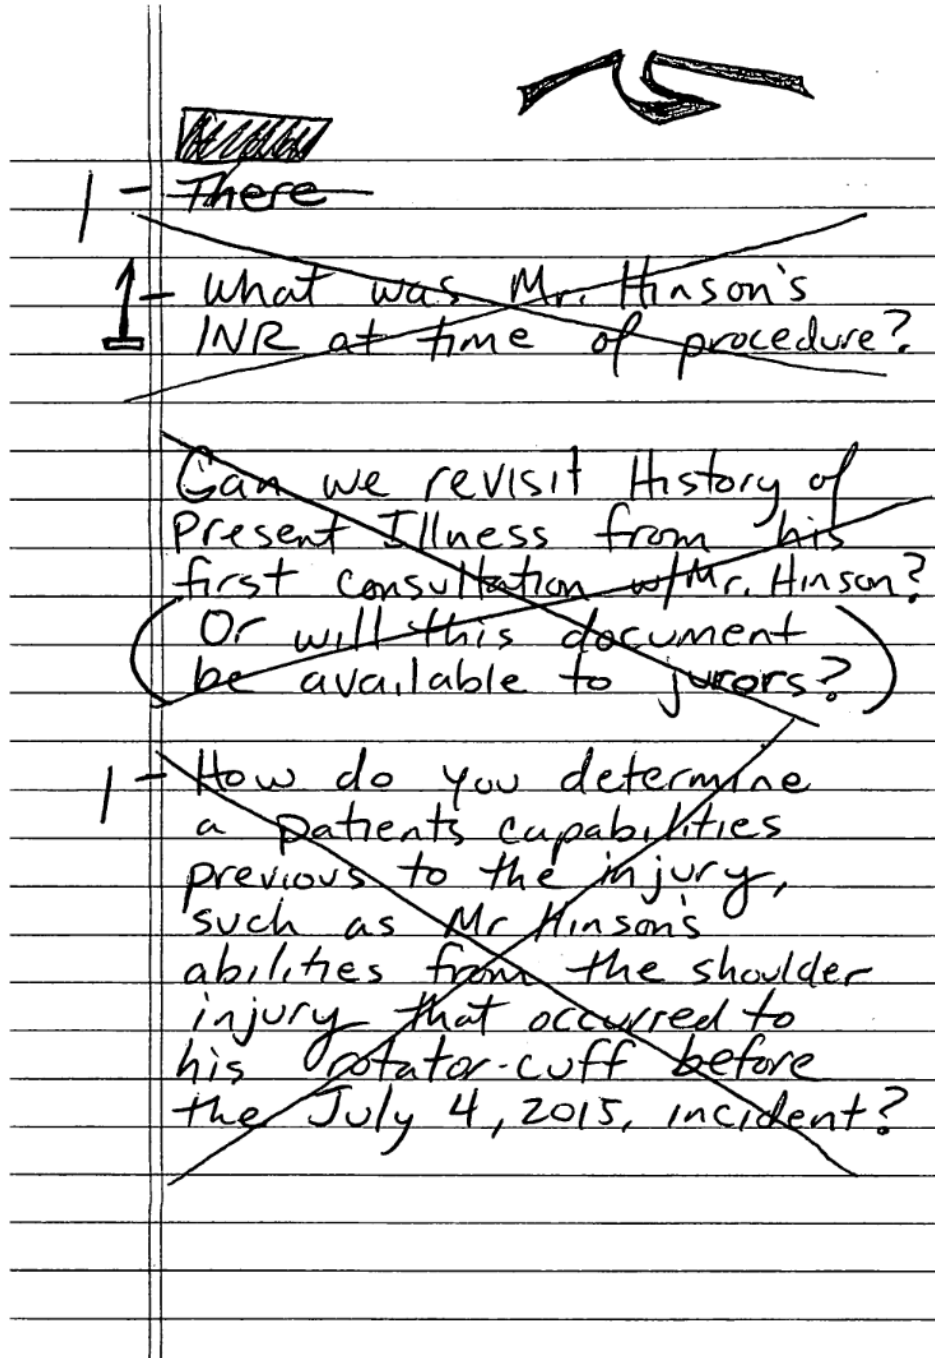 1 - There
1 - What was Mr. Hinson's
INR at time of procedure?
Can we revisit History of
Present Illness from his
first consultation w/Mr. Hinson?
(Or will this document
be available to jurors?)
1 - How do you determine
a patients capabilities
previous to the injury,
such as Mr Hinson's
abilities from the shoulder
injury that occurred to
his rotator-cuff before
the July 4, 2015, incident?